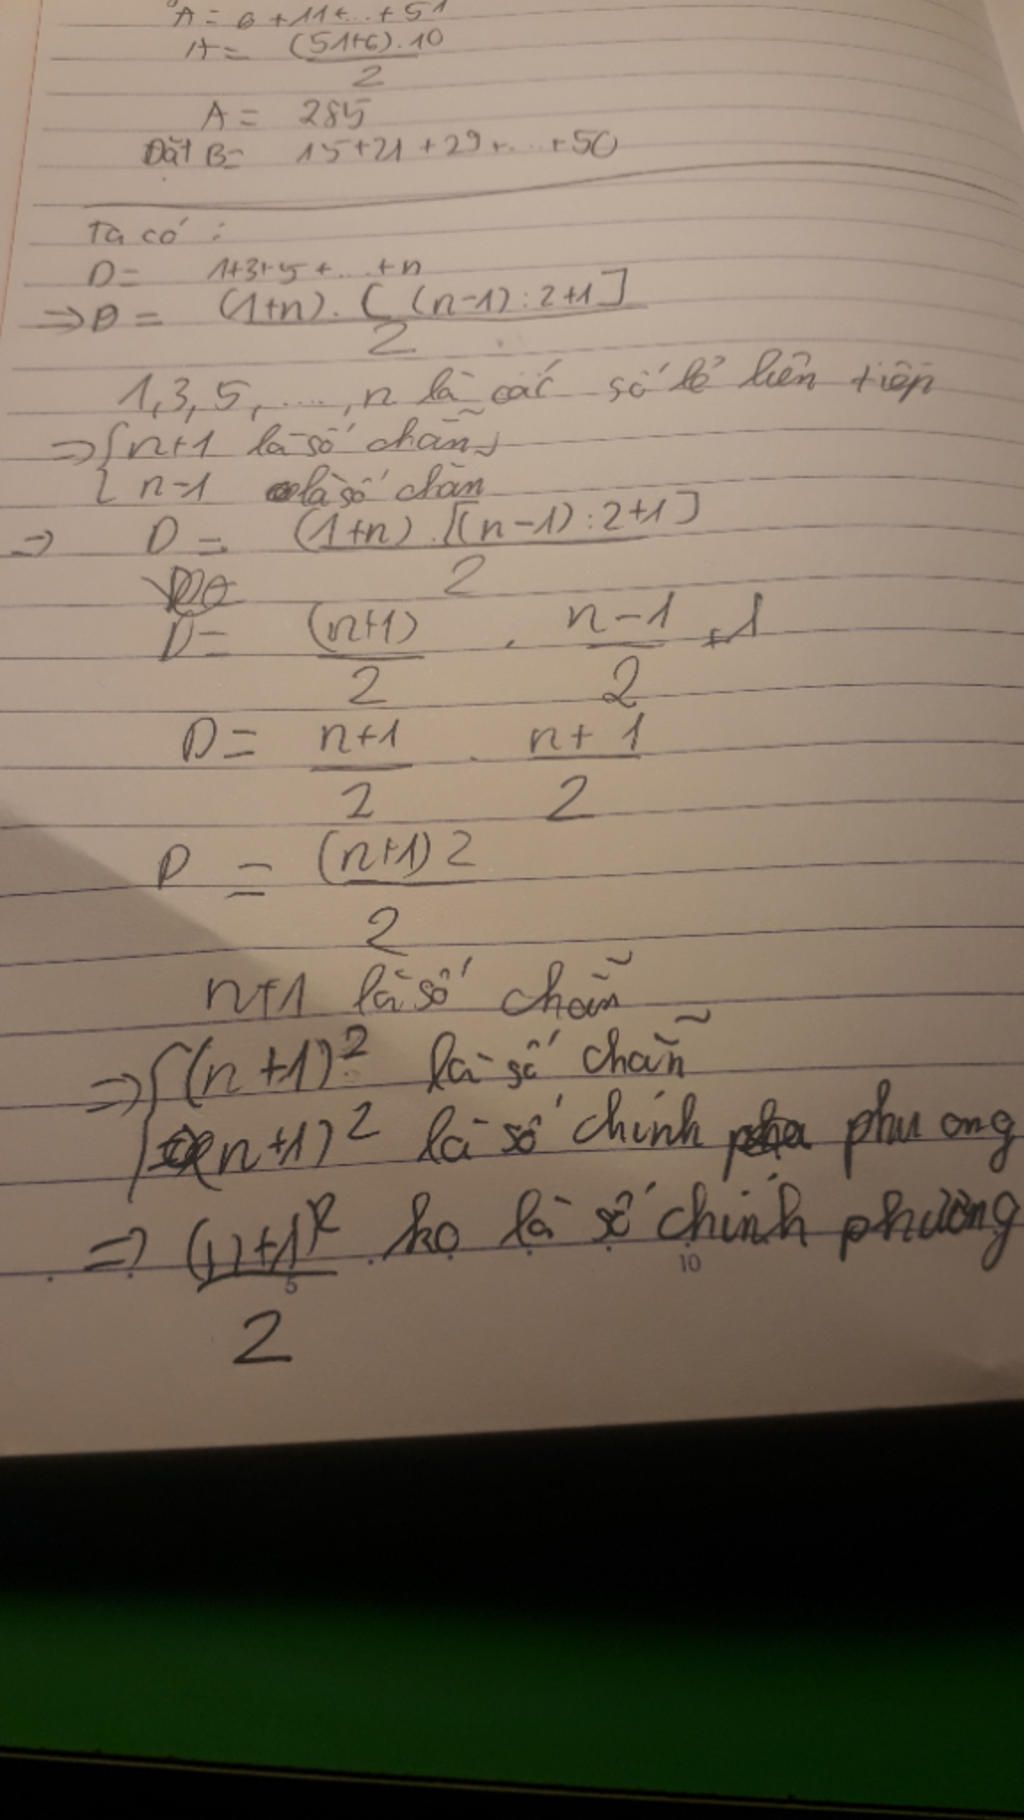 A = 6 + 11 + ... + 51
A = (51+6).10
2
A = 285
Đặt B = 15+21+29+...+50
Ta có :
D = 1+3+5+...+n
=> D = (1+n).[(n-1):2+1]
2
1,3,5,....,n là các số lẻ liên tiếp
=> { n+1 là số chẵn
{ n-1 là số chẵn
=> D = (1+n).[(n-1):2+1]
2
D = (n+1) . n-1 +1
2 2
D = n+1 . n+1
2 2
D = (n+1)2
2
n+1 là số chẵn
=> { (n+1)² là số chẵn
(n+1)² là số chính phương
=> (n+1)² ko là số chính phương
5 10
2